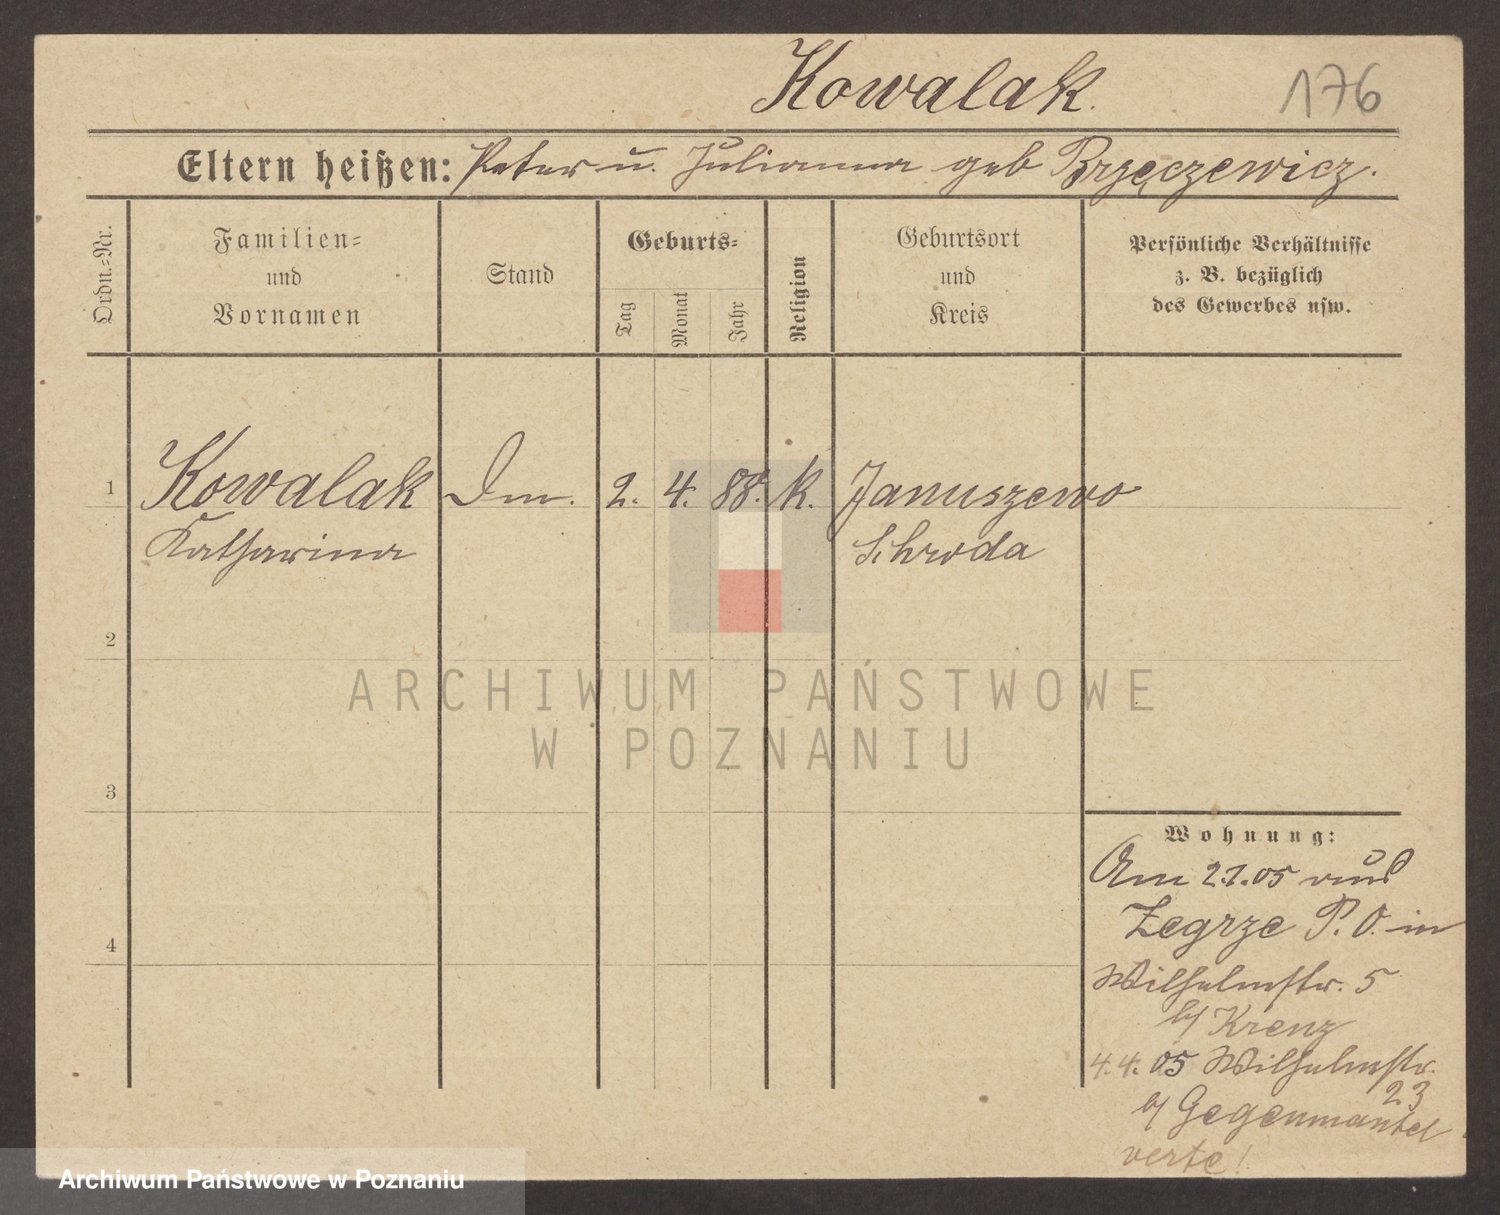 Kowalak.
176
Eltern heißen: Peter u. Julianna geb Brzęczewicz.
Ordn.-Nr.
Familien-
und
Vornamen
Stand
Geburts-
Tag
Monat
Jahr
Religion
Geburtsort
und
Kreis
Persönliche Verhältnisse
z. B. bezüglich
des Gewerbes usw.
1 Kowalak Dm. 2. 4. 88. k. Januszewo
Katharina Schroda
2
ARCHIWUM PAŃSTWOWE
W POZNANIU
3
Wohnung:
Am 2.1.05 aus
4 Zegrze P. O. in
Wilhelmstr. 5
b/ Krenz
4. 4. 05 Wilhelmstr.
23
b/ Gegenmantel
verte!
Archiwum Państwowe w Poznaniu